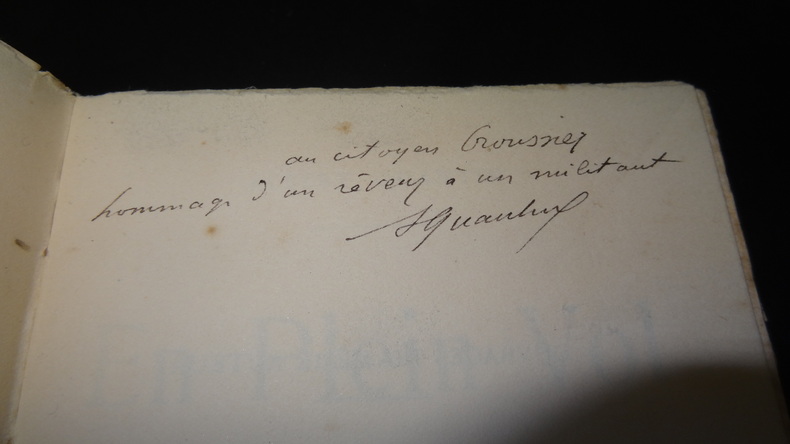 au citoyen Groussier
hommage d'un rêveur à un militant